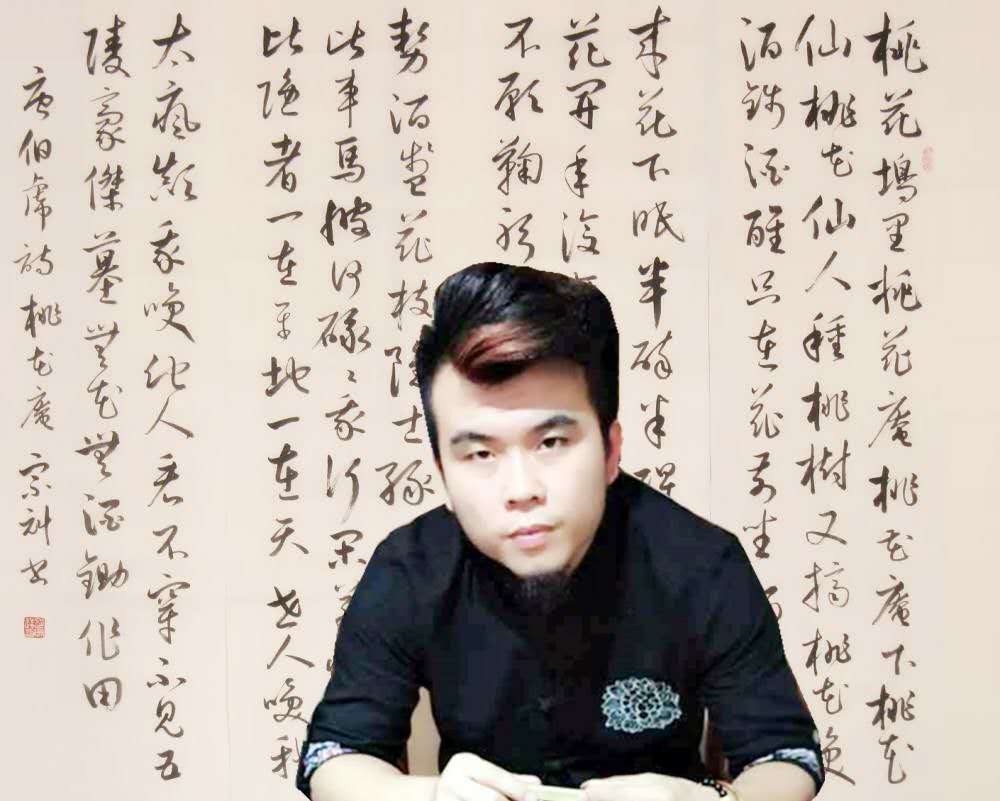 桃花塢里桃花庵桃花庵下桃花
仙桃花仙人種桃樹又摘桃花換
酒錢酒醒只在花前坐酒
来花下眠半醉半醒
花開年復
不願鞠躬
勢酒盞花枝隐士緣
比車馬彼何碌碌我行閑
比隐者一在平地一在天世人咲我
太瘋顛我咲他人看不穿不見五
陵豪傑墓無花無酒鋤作田
唐伯虎詩桃花庵宗科书